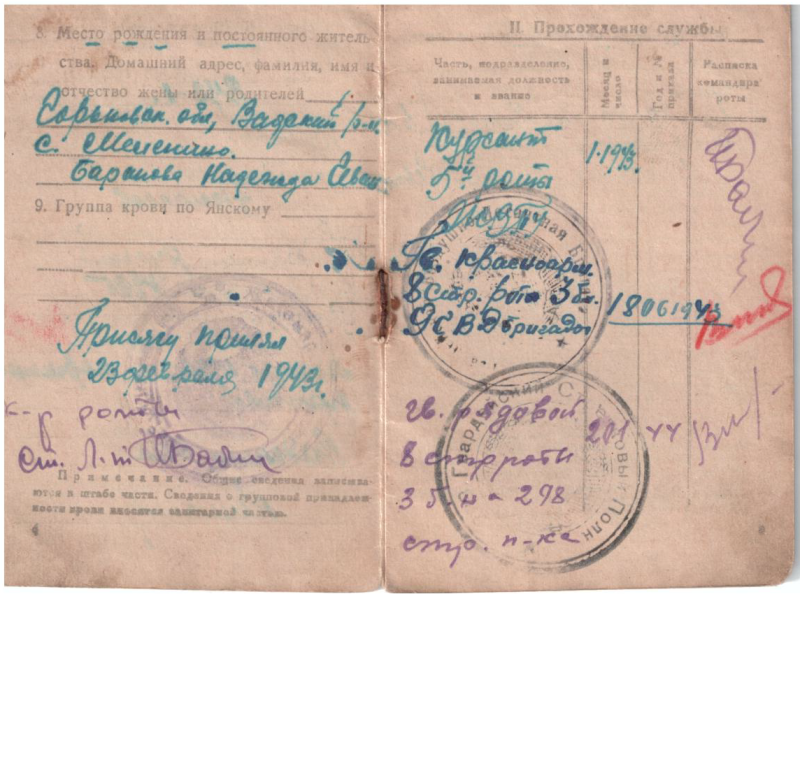 8. Место рождения и постоянного житель-
ства. Домашний адрес, фамилия, имя и
отчество жены или родителей
Горьковск. обл, Вадский р-н.
с.
Баранова Надежда Иван
9. Группа крови по Янскому
Присягу принял
23 февраля 1943г.
к-р роты
ст. л-т
Примечание. Общие сведения записыва-
ются в штабе части. Сведения о групповой принадлеж-
ности крови вносятся санитарной частью.
4
II. Прохождение службы
Часть, подразделение, занимаемая должность и звание
Месяц и число
Год и № приказа
Расписка командира роты
Курсант
5й роты
1.1943.
Гв. красноарм.
8 стр. рота 3 бн.
9 ГВВД бригады
18 06 1943
гв. рядовой
8 стр роты
201 44
3 б н а 298
стр. п-ка
Гвардейский
Полк